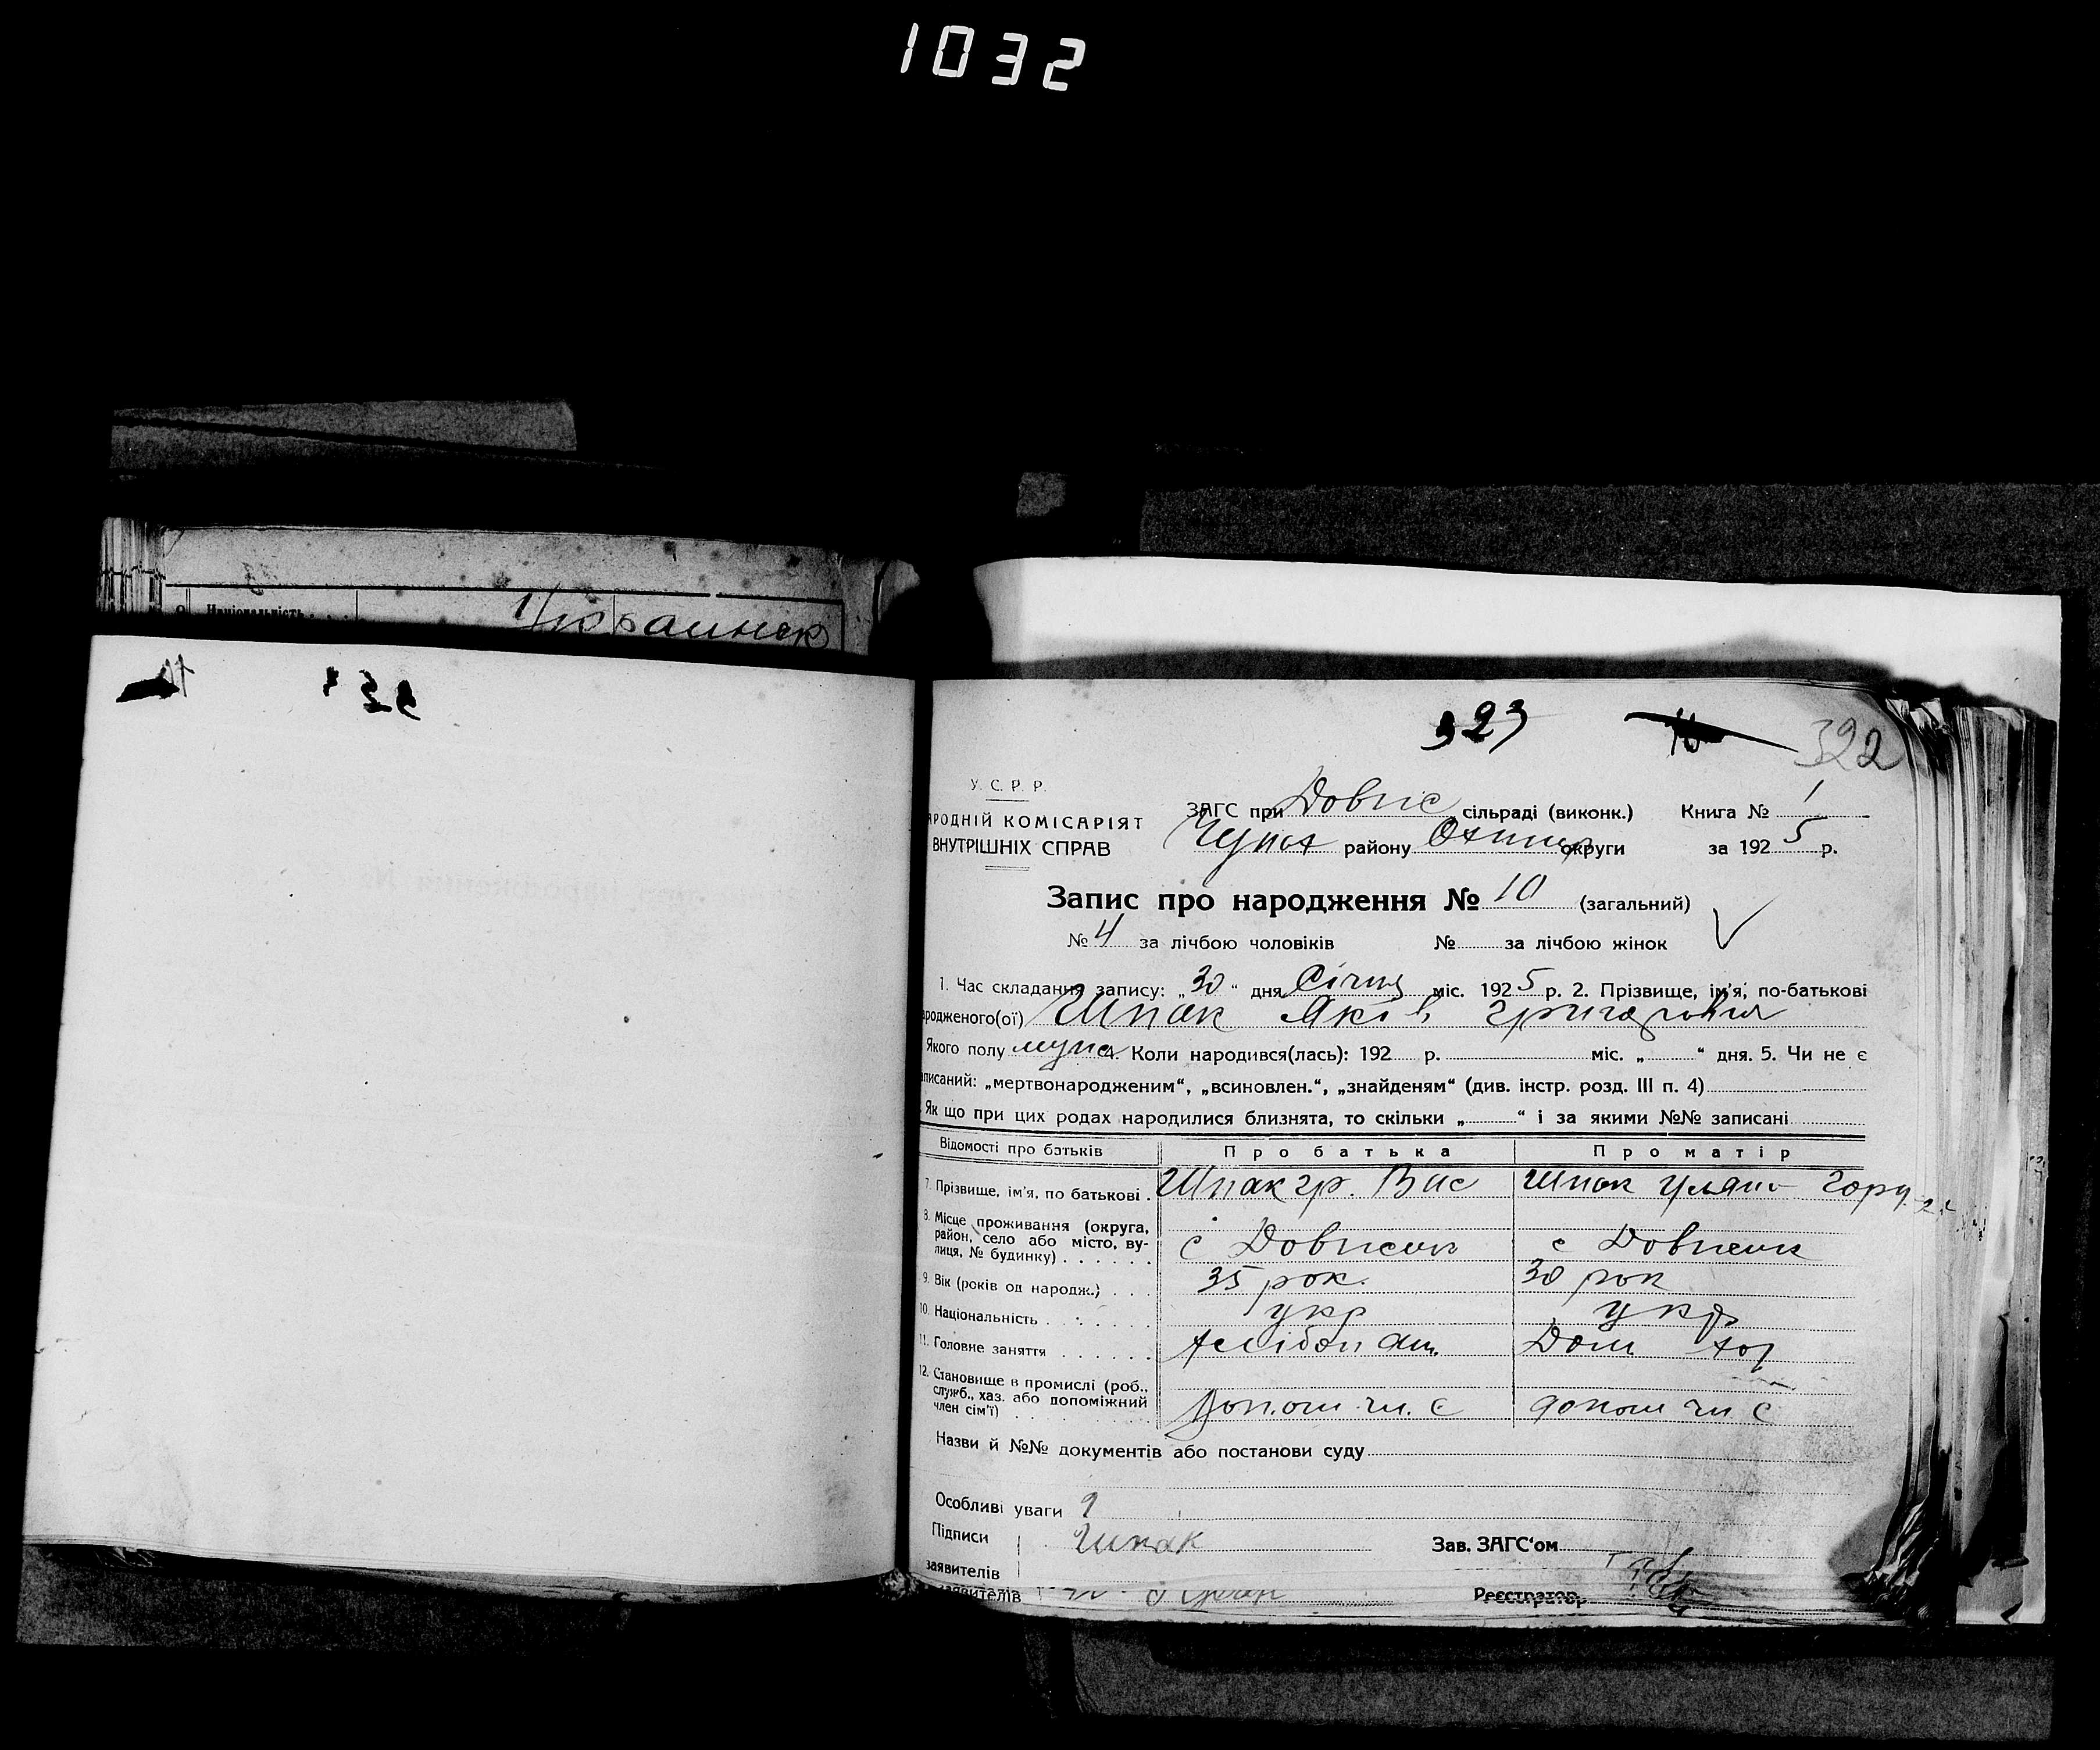 1032
Національність
Украинск
323
322
У. С. Р. Р.
РОДНІЙ КОМІСАРІЯТ
ВНУТРІШНІХ СПРАВ
ЗАГС при Довпс сільраді (виконк.) Книга № 1
Чупах району Охтир округи за 1925 р.
Запис про народження № 10 (загальний)
№ 4 за лічбою чоловіків № за лічбою жінок
1. Час складання запису: „30“ дня Січня міс. 1925 р. 2. Прізвище, ім'я, по-батькові
родженого(ої) Шпак Яків
Якого полу муж 4. Коли народився(лась): 192 р. міс. „ “ дня. 5. Чи не є
писаний: „мертвонародженим“, „всиновлен.“, „знайденям“ (див. інстр. розд. III п. 4)
Як що при цих родах народилися близнята, то скільки „ “ і за якими №№ записані
Відомості про батьків Про батька Про матір
7. Прізвище, ім'я, по батькові. Шпак гр. Вас Шпак Уляна
8. Місце проживання (округа, район, село або місто, ву-
лиця, № будинку) с с
9. Вік (років од народж.) 35 рок. 30 рок
10. Національність укр укр
11. Головне заняття Дом
12. Становище в промислі (роб.,
служб., хаз. або допоміжний
член сім'ї) допом чл. с допом чл с
Назви й №№ документів або постанови суду
Особливі уваги
Підписи Шпак Зав. ЗАГС'ом
заявителів
заявителів Реєстратор